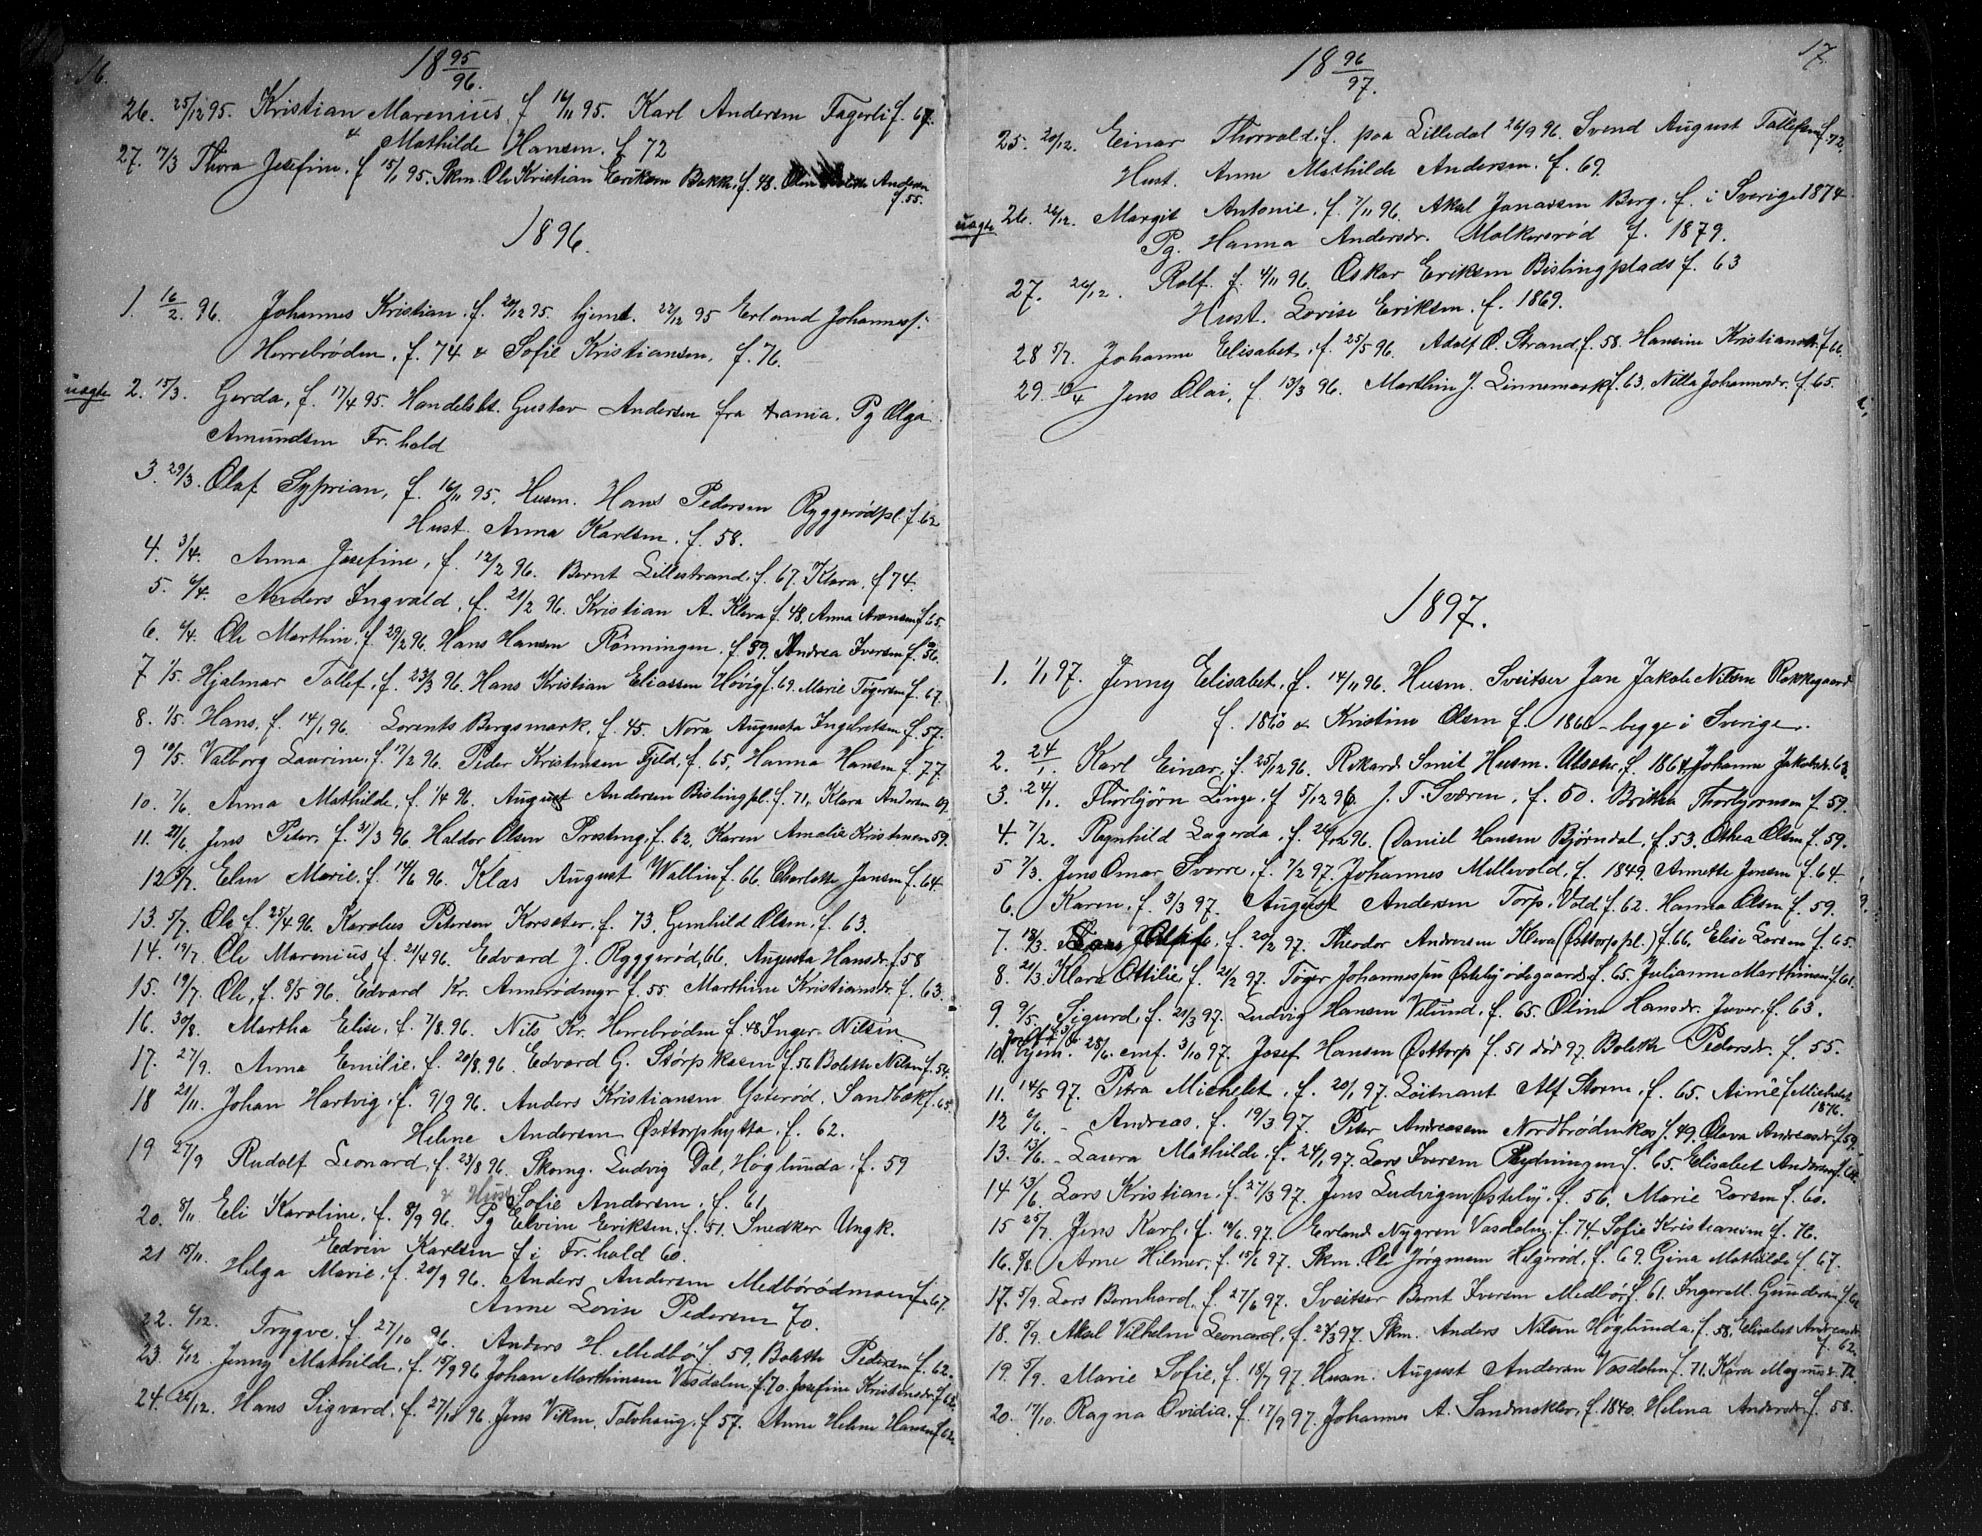 16. 18 95/96.
26. 25/12 95. Kristian Marenius, f 16/11 95. Karl Andersen Fagerli f. 67.
& Mathilde Hansen. f 72
27. 17/3 Thora Josefine. f 15/1 95. Skm. Ole Kristian Eriksen Bakke, f. 48. Andersen
f. 55.
1896.
1. 16/2. 96. Johannes Kristian. f. 20/12 95. hjemd. 22/12 95 Erland Johannesf:
Herrebröden, f. 74 & Sofie Kristiansen, f. 76.
uægte 2. 15/3. Gerda, f. 17/4 95. Handelsbt. Gustav Andersen fra Pg Olga
Amundsen Fr.hald
3. 29/3. Olaf Syprian, f. 16/11 95. Husm. Hans Pedersen Ryggerödpl. f. 62
Hust. Anna Karlsen. f. 58.
4. 3/4. Anna Josefine, f. 12/2 96. Bernt Lillestrand. f. 67. Klara. f 74.
5. 6/4. Anders Ingvald, f. 21/2 96. Kristian A. Kleva f. 48, Anna Aronsen f 65.
6. 6/4. Ole Marthin. f. 29/2 96. Hans Hansen Rönningen. f. 59. Andrea Iversen f. 56.
7 1/5. Hjalmar Tollef, f. 23/3 96. Hans Kristian Eliassen Hövig f. 69. Marie Tögersen f. 67.
8. 1/5. Hans, f. 14/1 96. Lorents Bergsmark, f. 45. Nora Augusta Ingebretsen f. 57.
9 10/5. Valborg Laurine, f. 17/2 96. Peder Kristensen Fjeld, f. 65, Hanna Hansen f. 77.
10. 7/6. Anna Mathilde, f. 1/4 96. August Andersen Bislingpl. f. 71, Klara Andersen 69.
11. 21/6. Jens Peter, f. 31/3 96 Haldor Olsen Presteng, f. 62, Karen Amalie Kristensen 59.
12 5/7. Elen Marie. f. 14/6 96. Klas August Wallin f. 66. Charlotte Jansen f. 64.
13. 5/7. Ole f. 25/4 96. Karolus Petersen Korseter. f. 73, Gunhild Olsen, f. 63.
14. 19/7. Ole Marenius, f. 21/4 96. Edvard J. Ryggeröd, 66. Augusta Hansdr. f 58
15. 19/7. Ole, f. 8/5 96. Edvard Kr. Annerödmyr f. 55. Marthine Kristiansdr. f. 63.
16. 30/8. Martha Elise, f. 7/8 96. Nils Kr. Herrebröden f. 48, Inger Nilsen
17. 27/9. Anna Emilie. f. 20/8. 96. Edvard G. f. 56 Bolette Nilsen f. 54.
18 21/11. Johan Hartvig, f. 9/9 96. Anders Kristiansen Ysteröd. Sandbæk f. 65.
Helene Andersen Østtorphytta. f. 62.
19 27/9 Rudolf Leonard. f. 23/8 96. Skomg. Ludvig Dal, Höglunda. f. 59
& Hust. Sofie Andersen, f. 61
20. 8/11. Eli Karoline, f. 8/9 96. Pg Elvine Eriksen. f. 51. Snedker Ungk.
Edvin Karlsen f i Fr.hald 60.
21 15/11. Helga Marie, f. 20/9 96. Anders Andersen Medbörödmoen f. 67.
Anne Lovise Pedersen 70.
22. 6/12. Trygve. f. 27/10 96. Anders H. Medbö f. 59, Bolette Pedersen f. 62.
23. 6/12. Jenny Mathilde, f. 15/9 96 Johan Marthinsen Vasdalen, f. 70. Josefine Kristensdr. f 68.
24. 26/12. Hans Sigvard. f. 27/10 96. Jens Viken, Tolvhaug, f. 57. Anne Helene Hansen f 62.
18 96/97. 17.
25. 20/12. Einar Thorvald. f. paa Lilledal 26/9 96. Svend August Tollefsen f. 72.
Hust. Anne Mathilde Andersen. f. 69.
uægte 26. 26/12. Margit Antonie. f. 7/11 96. Aksel Jonassen Berg. f. i Sverige 1874
Pg. Hanna Andersdr. Molkersröd f. 1879.
27. 26/12. Rolf. f. 4/11 96. Oskar Eriksen Bislingplads f. 63
Hust. Lovise Eriksen. f. 1869.
28 5/7. Johanne Elisabet, f. 25/5 96. Adolf O. Strand, f. 58. Hansine Kristiansdr. f 66.
29. 10/4 Jens Olai, f. 13/3 96. Marthin J. Linnemark f. 63. Nilla Johannesdr. f. 65.
1897.
1. 1/1 97. Jenny Elisabet, f. 14/11 96. Husm. Sveitser Jan Jakob Nilsen Rokkegaard
f. 1860 & Kristine Olsen f. 1860 - begge i Sverige.
2. 24/1. Karl Einar, f. 25/12 96. Rikard Smit Husm. f. 1864 Johanne Jakobsdr. 63.
3. 24/1. Thorbjörn Linge, f 5/12 96. J. T. Sværen, f. 50. Brithe Thorbjornsen f. 59.
4. 7/2. Ragnhild Lagerda, f. 26/12 96. Daniel Hansen Björndal, f. 53. Othea Olsen f. 59.
5 7/3. Jens Omar Sverre, f. 7/2 97. Johannes Mellevold, f. 1849. Annette Jensen f. 64.
6. Karen, f. 3/3 97. August Andersen Torp. Vold, f. 62. Hanna Olsen f. 59.
7. 18/3. f. 20/2 97. Theodor Andersen Kleva (Østtorppl.) f. 66, Elise Larsen f. 65.
8. 21/3. Klara Ottilie f. 21/2 97. Töger Johannessen Østebyödegaard f. 65. Julianne Marthinsen f. 61.
9. 9/5. Sigurd, f. 21/3 97. Ludvig Hansen Velund, f. 65. Oline Hansdr. Juver. f. 63.
10. Hjem. 28/6. emf. 3/10 97. Josef Hansen Østtorp f. 51 död 97. Bolette Pedersdr. f. 55.
11. 14/5 97. Petra Michelet, f. 20/1 97. Löitnant Alf Storm, f. 65. Aimée f Michelet
1876.
12 6/6. - Andreas. f. 19/3 97. Peter Andreassen Nordbrödenkas f. 49. Olava Andreasdr. f 59.
13. 13/6. - Laura Mathilde. f. 24/1 97. Lars Iversen Rydningen f. 65. Elisabet Andersen f. 68.
14 13/6. Lars Kristian. f. 27/3 97. Jens Ludvigsen Østeby. f. 56, Marie Larsen f. 60.
15 25/7. Jens Karl, f. 10/6. 97. Erland Nygren Vasdalen, f. 74. Sofie Kristiansen f. 76.
16. 8/8. Arne Hilmer, f. 15/6 97. Skm. Ole Jörgensen Helgeröd, f. 69. Gina Mathilde f. 67.
17. 5/9. Lars Bernhard. f. 27/6 97. Sveitser Bernt Iversen Medbö, f. 61. Inger M. Gundersen f. 62
18. 5/9. Aksel Vilhelm Leonard, f. 27/3 97. Skm. Anders Nilsen Höglunda, f. 58, Elisabet Andreasdr.
f. 62.
19. 5/9. Marie Sofie, f. 18/7 97. Husm. August Andersen Vasdalen f. 71. Kara Magnusdr. 72.
20. 17/10. Ragna Ovidia. f. 17/9 97. Johannes A. Sandmoklev, f. 1840. Helena Andersdr. f. 58.